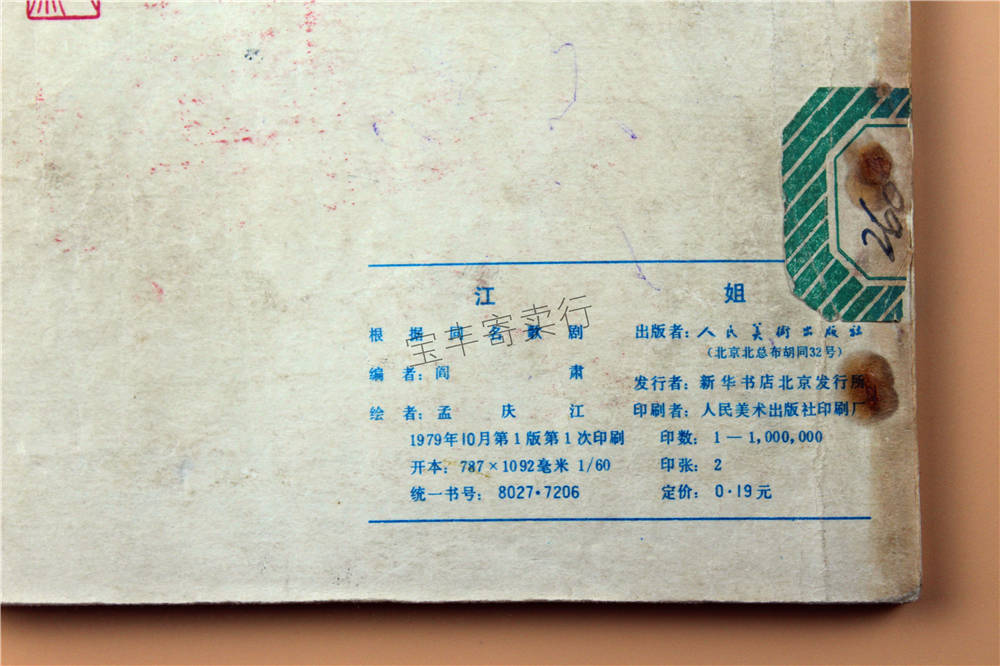 江 姐
根据同名歌剧
编者：阎肃
绘者：孟庆江
1979年10月第1版第1次印刷
开本：787×1092毫米 1/60
统一书号：8027·7206
出版者：人民美術出版社
（北京北总布胡同32号）
发行者：新华书店北京发行所
印刷者：人民美术出版社印刷厂
印数：1—1,000,000
印张：2
定价：0·19元
宝丰寄卖行